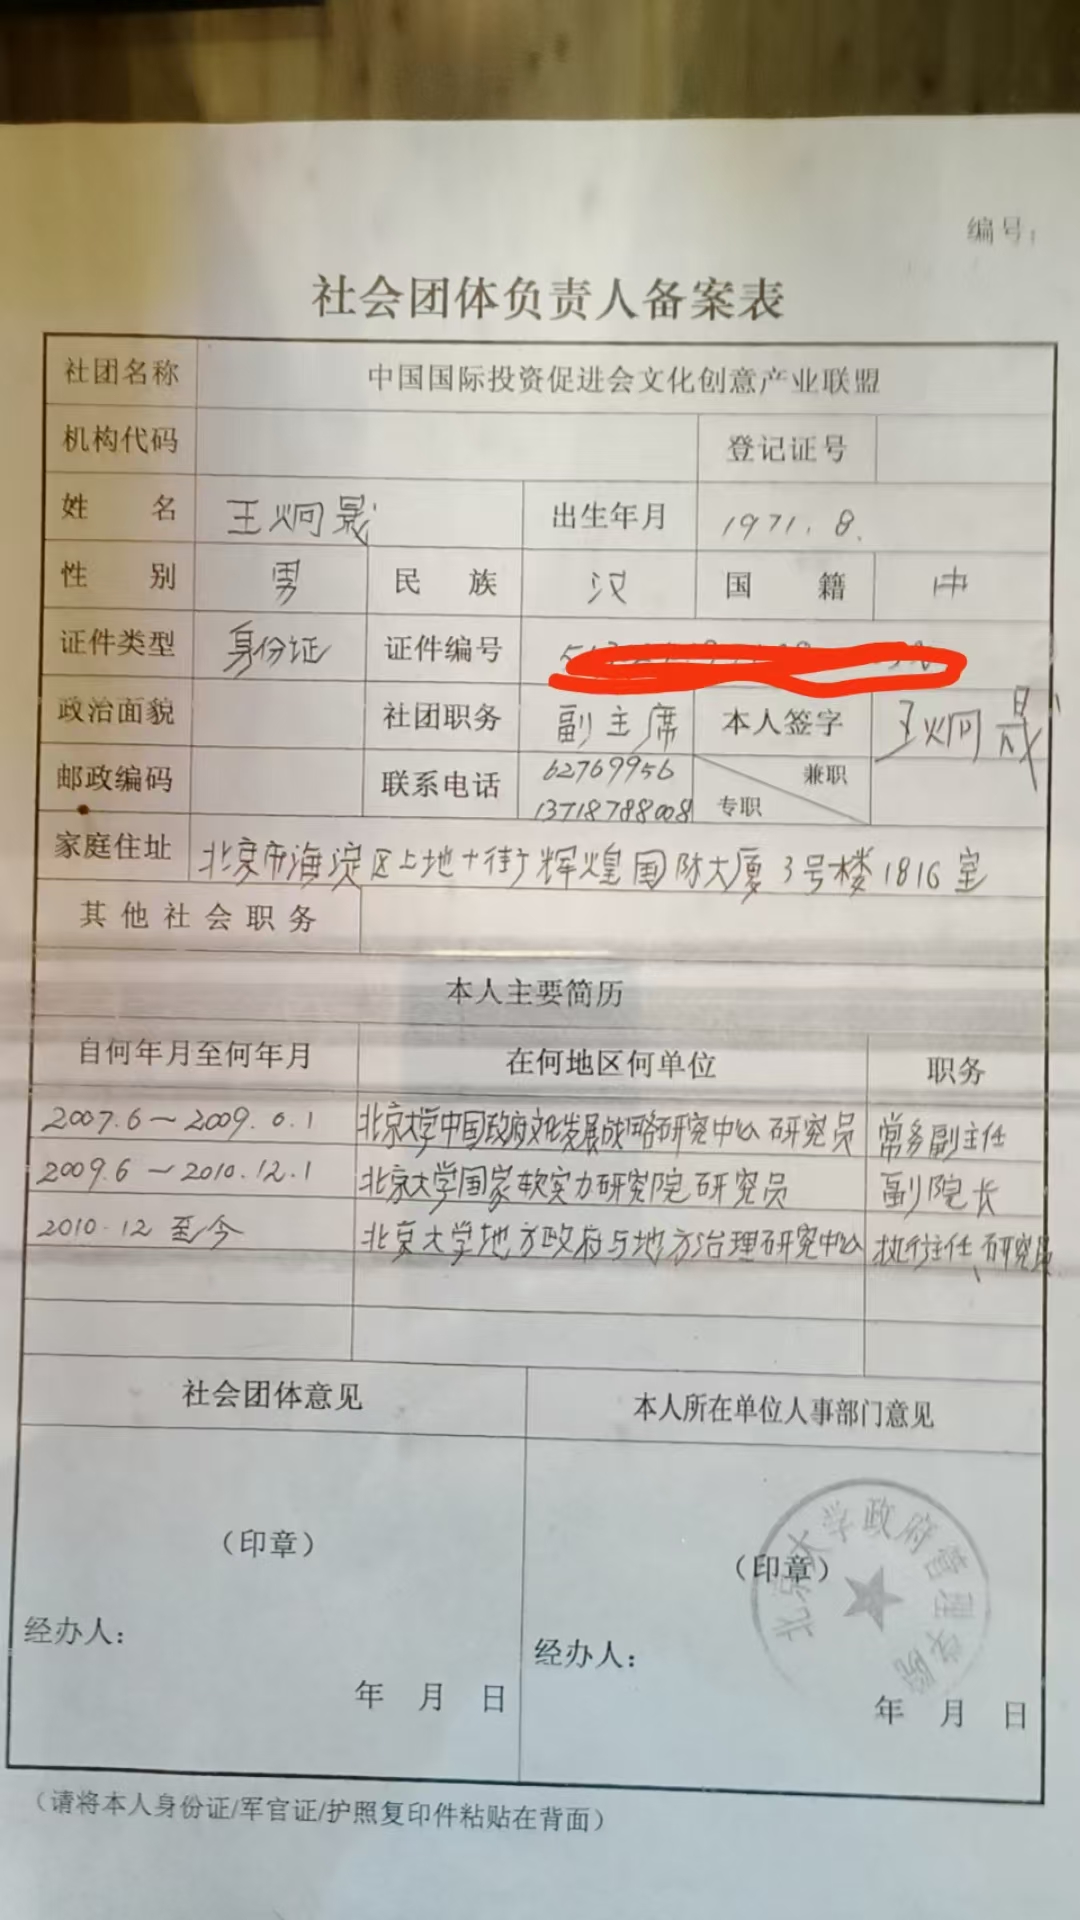 编号：
社会团体负责人备案表
社团名称 中国国际投资促进会文化创意产业联盟
机构代码 登记证号
姓名 王炯晟 出生年月 1971.8.
性别 男 民族 汉 国籍 中
证件类型 身份证 证件编号
政治面貌 社团职务 副主席 本人签字 王炯晟
邮政编码 联系电话 62769956 兼职
13718788008 专职
家庭住址 北京市海淀区上地十街辉煌国际大厦3号楼1816室
其他社会职务
本人主要简历
自何年月至何年月 在何地区何单位 职务
2007.6～2009.0.1 北京大学中国政府文化发展战略研究中心研究员 常务副主任
2009.6～2010.12.1 北京大学国家软实力研究院研究员 副院长
2010.12至今 北京大学地方政府与地方治理研究中心 执行主任、研究员
社会团体意见 本人所在单位人事部门意见
（印章） （印章）
北京大学政府管理学院
经办人： 经办人：
年 月 日 年 月 日
（请将本人身份证/军官证/护照复印件粘贴在背面）